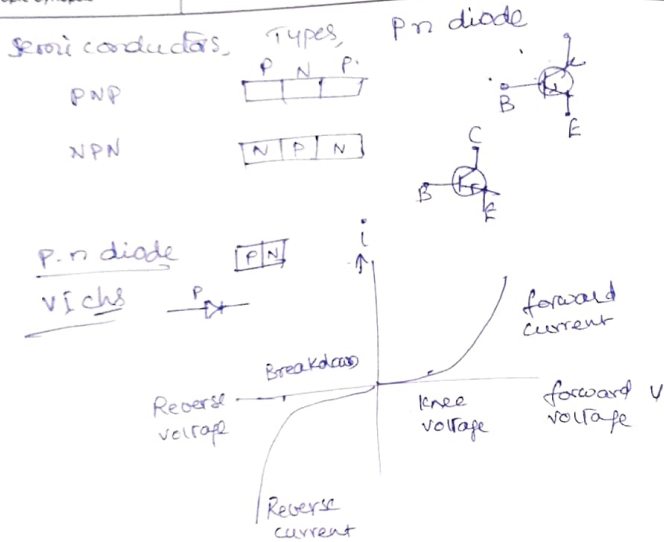 Semi conductors, Types, Pn diode
P N P
PNP
B
E
NPN
N P N
C
B
E
p.n diode
P N
i
VI chs
P
forward current
Breakdown
Reverse voltage
Knee voltage
forward voltage
V
Reverse current